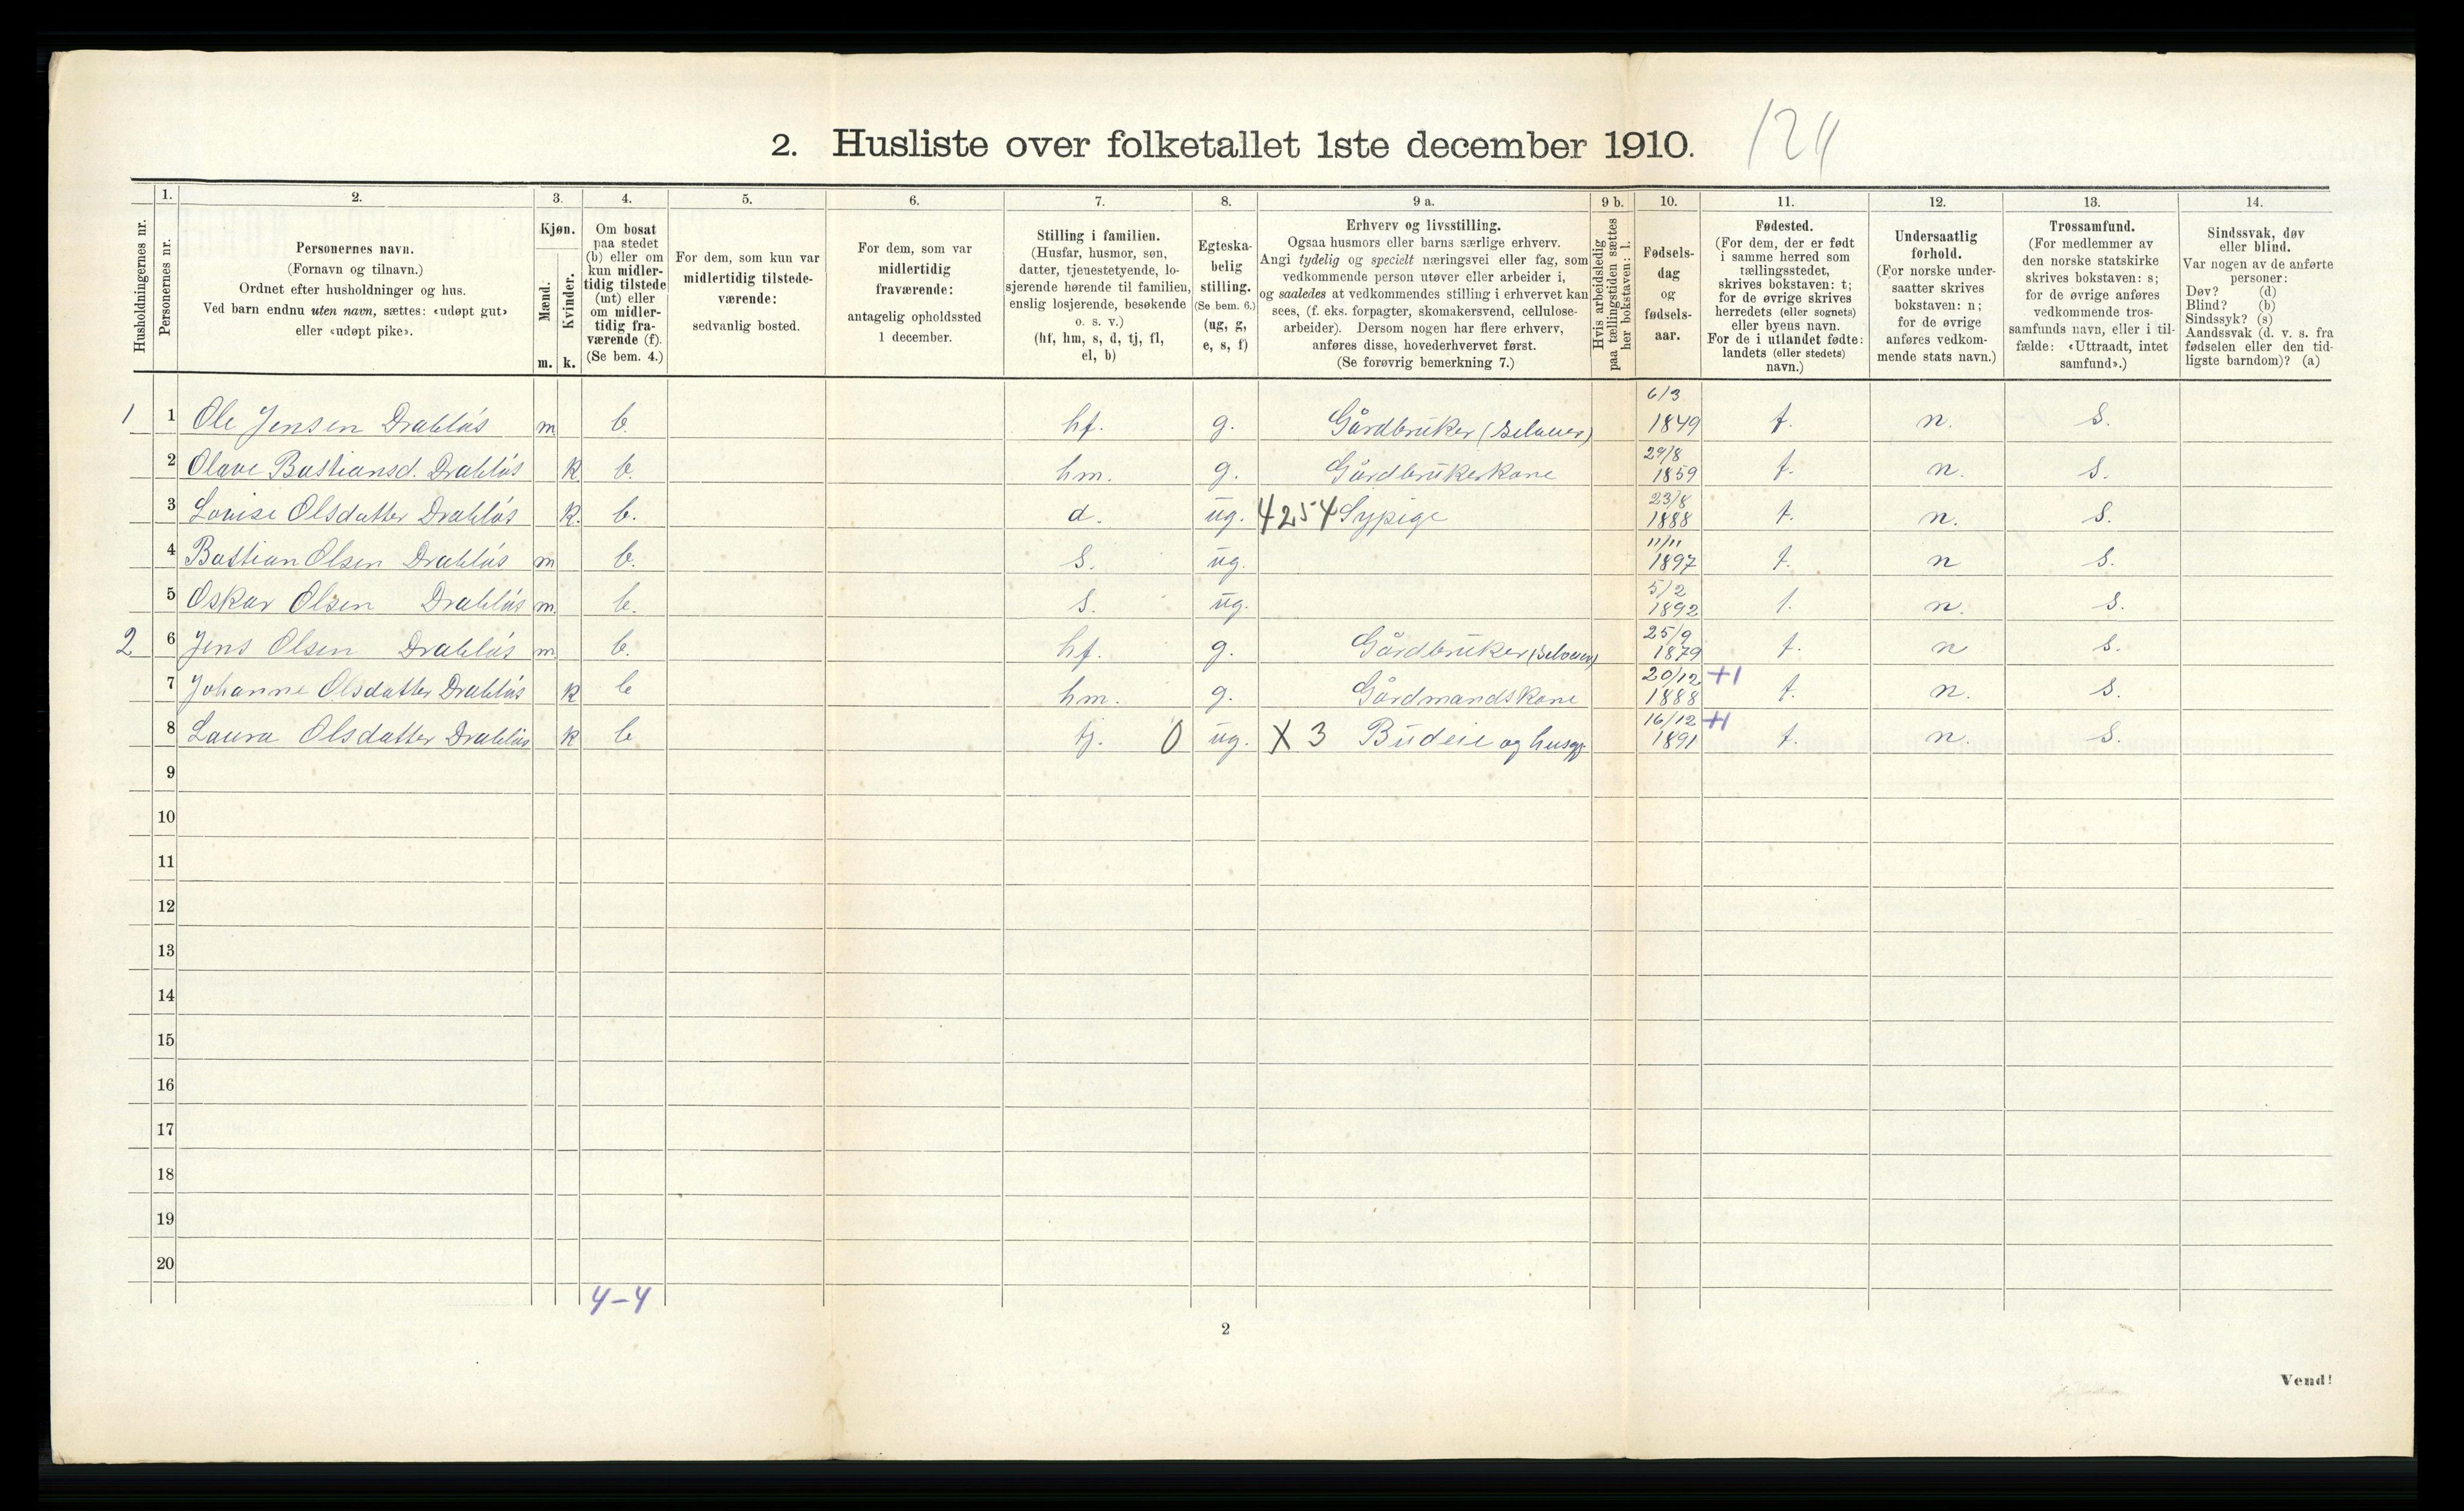 2. Husliste over folketallet 1ste december 1910.
124
Husholdningernes nr.
1.
Personernes nr.
2.
Personernes navn.
(Fornavn og tilnavn.)
Ordnet efter husholdninger og hus.
Ved barn endnu uten navn, sættes: «udøpt gut»
eller «udøpt pike».
3.
Kjøn.
Mænd.
m.
Kvinder.
k.
4.
Om bosat
paa stedet
(b) eller om
kun midler-
tidig tilstede
(mt) eller
om midler-
tidig fra-
værende (f).
(Se bem. 4.)
5.
For dem, som kun var
midlertidig tilstede-
værende:
sedvanlig bosted.
6.
For dem, som var
midlertidig
fraværende:
antagelig opholdssted
1 december.
7.
Stilling i familien.
(Husfar, husmor, søn,
datter, tjenestetyende, lo-
sjerende hørende til familien,
enslig losjerende, besøkende
o. s. v.)
(hf, hm, s, d, tj, fl,
el, b)
8.
Egteska-
belig
stilling.
(Se bem. 6.)
(ug, g,
e, s, f)
9 a.
Erhverv og livsstilling.
Ogsaa husmors eller barns særlige erhverv.
Angi tydelig og specielt næringsvei eller fag, som
vedkommende person utøver eller arbeider i,
og saaledes at vedkommendes stilling i erhvervet kan
sees, (f. eks. forpagter, skomakersvend, cellulose-
arbeider). Dersom nogen har flere erhverv,
anføres disse, hovederhvervet først.
(Se forøvrig bemerkning 7.)
9 b.
Hvis arbeidsledig
paa tællingstiden sættes
her bokstaven: l.
10.
Fødsels-
dag
og
fødsels-
aar.
11.
Fødested.
(For dem, der er født
i samme herred som
tællingsstedet,
skrives bokstaven: t;
for de øvrige skrives
herredets (eller sognets)
eller byens navn.
For de i utlandet fødte:
landets (eller stedets)
navn.)
12.
Undersaatlig
forhold.
(For norske under-
saatter skrives
bokstaven: n;
for de øvrige
anføres vedkom-
mende stats navn.)
13.
Trossamfund.
(For medlemmer av
den norske statskirke
skrives bokstaven: s;
for de øvrige anføres
vedkommende tros-
samfunds navn, eller i til-
fælde: «Uttraadt, intet
samfund».)
14.
Sindssvak, døv
eller blind.
Var nogen av de anførte
personer:
Døv? (d)
Blind? (b)
Sindssyk? (s)
Aandssvak (d. v. s. fra
fødselen eller den tid-
ligste barndom)? (a)
1 1 Ole Jensen Drabløs m b. hf. g. Gårdbruker (Selveier) 6/3 1849 t. n. s.
2 Olave Bastiansd. Drabløs k b. hm. g. Gårdbrukerkone 29/8 1859 t. n. s.
3 Louise Olsdatter Drabløs k. b. d. ug. 4254 Sypige 23/8 1888 t. n. s.
4 Bastian Olsen Drabløs m b. s. ug. 11/11 1897 t. n s.
5 Oskar Olsen Drabløs m. b. s. ug. 5/2 1892 t. n. s.
2 6 Jens Olsen Drabløs m b. hf. g. Gårdbruker (Selveier) 25/9 1879 t. n s.
7 Johanne Olsdatter Drabløs k b hm. g. Gårdmandskone 20/12 +1 1888 t. n. s.
8 Laura Olsdatter Drabløs k b tj. 0 ug. X 3 Budeie og husgj. 16/12 +1 1891 t. n. s.
9
10
11
12
13
14
15
16
17
18
19
20
4-4
2
Vend!